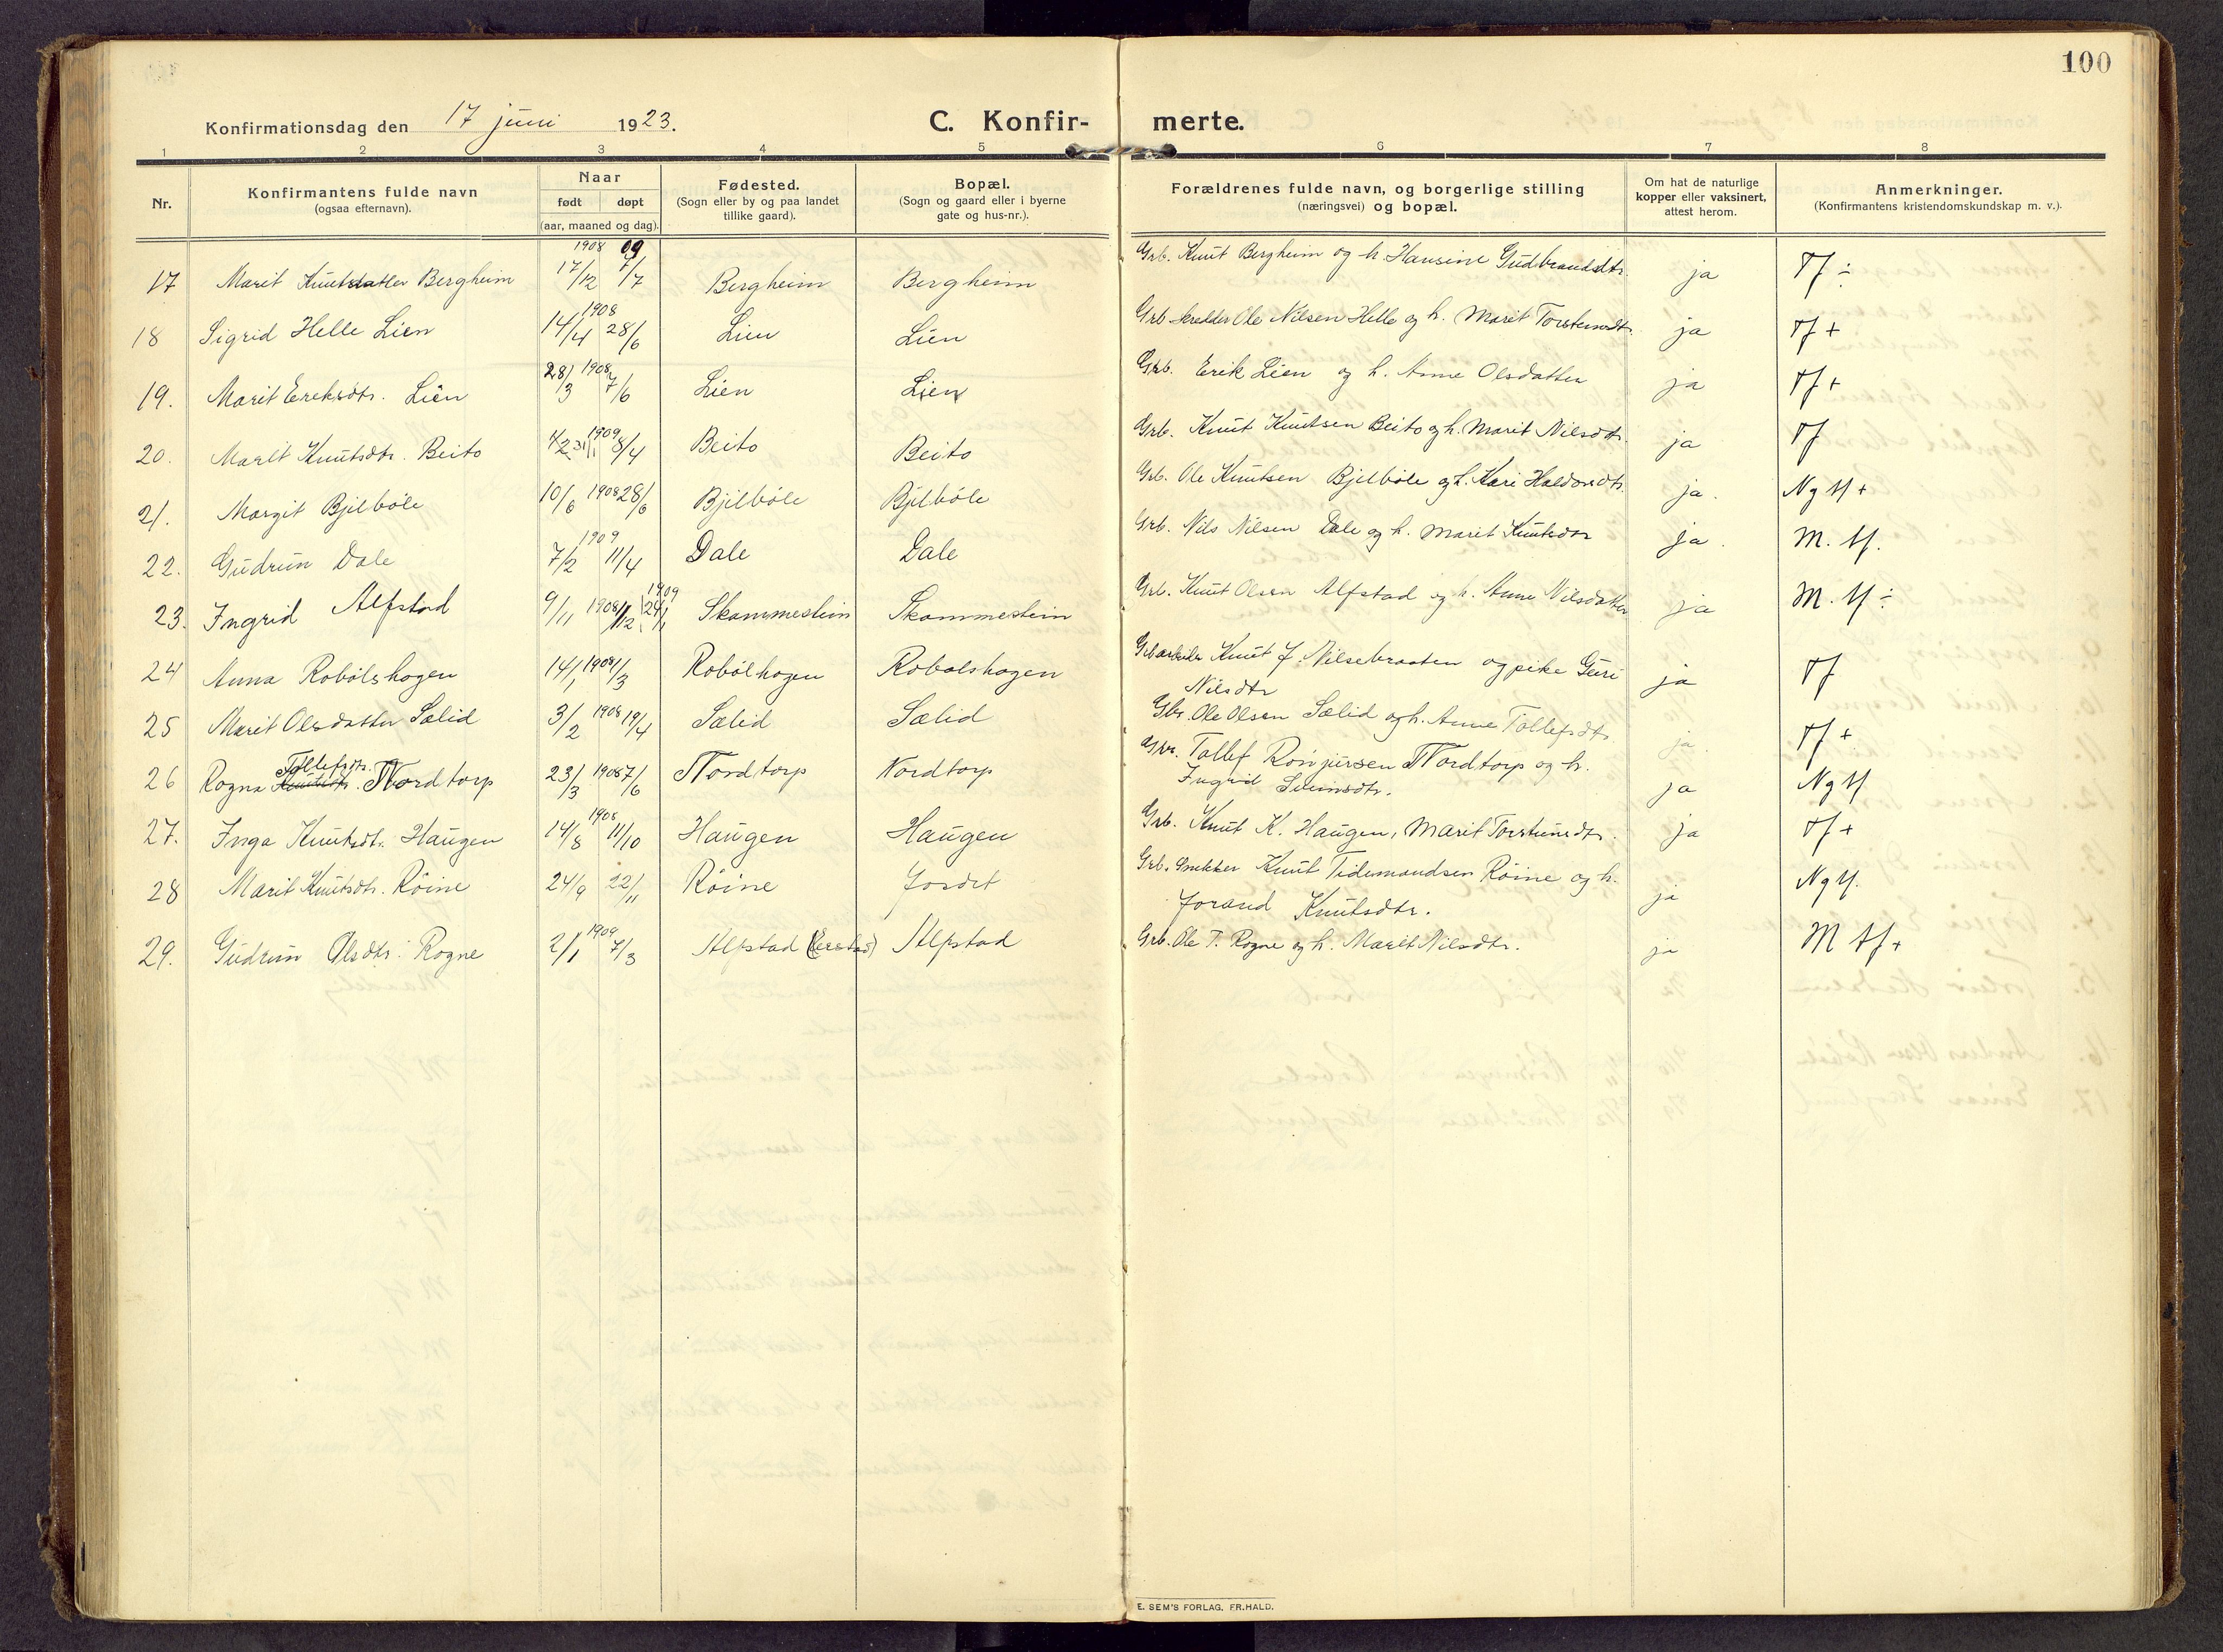 100
Konfirmationsdag den 17 juni 1923.
C. Konfir- merte.
1 2 3 4 5 6 7 8
Nr.
Konfirmantens fulde navn
(ogsaa efternavn).
Naar
født døpt
(aar, maaned og dag).
Fødested.
(Sogn eller by og paa landet
tillike gaard).
Bopæl.
(Sogn og gaard eller i byerne
gate og hus-nr.).
Forældrenes fulde navn, og borgerlige stilling
(næringsvei) og bopæl.
Om hat de naturlige
kopper eller vaksinert,
attest herom.
Anmerkninger.
(Konfirmantens kristendomskundskap m. v.).
1908 09
17 Marit Knutsdatter Bergheim 17/12 7/7 Bergheim Bergheim Grb. Knut Bergheim og h. Hansine Gudbrandsdtr. ja Tf ÷
1908
18 Sigrid Helle Lien 14/4 28/6 Lien Lien Grb. skredder Ole Nilsen Helle og h. Marit Torstensdtr. ja Tf +
19. Marit Eriksdtr. Lien 28/3 1908 7/6 Lien Lien Grb. Erik Lien og h. Anne Olsdatter ja Tf +
1909
20. Marit Knutsdtr. Beito 31/1 8/4 Beito Beito Grb. Knut Knutsen Beito og h. Marit Nilsdtr. ja Tf
21. Margit Bjelbøle 10/6 1908 28/6 Bjelbøle Bjelbøle Grb. Ole Knutsen Bjelbøle og h. Kari Haldorsdtr. ja. Ng tf +
1909
22. Gudrun Dale 7/2 11/4 Dale Dale Grb. Nils Nilsen Dale og h. Marit Knutsdtr ja. M. tf.
1909
23. Ingrid Alfstad 9/11 1908 24/1 Skammestein Skammestein Grb. Knut Olsen Alfstad og h. Anne Nilsdatter ja M. tf ÷
24 Anna Robølshagen 14/1 1908 1/3 Robølhagen Robølshagen Grb. arbeider Knut J. Nilsebraaten og pike Guri
Nilsdtr ja Tf
25 Marit Olsdatter Sælid 3/2 1908 19/4 Sælid Sælid Gbr. Ole Olsen Sælid og h. Anne Tollefsdtr. ja. Tf +
Tollefsdtr.
26 Rogna Knutsdtr. Nordtorp 23/3 1908 7/6 Nordtorp Nordtorp Gbr. Tollef Ronjusen Nordtorp og h.
Ingrid Sveinsdtr. ja Ng tf
1908
27. Inga Knutsdtr. Haugen 14/8 11/10 Haugen Haugen Grb. Knut K. Haugen, Marit Torstensdtr. ja Tf +
28 Marit Knutsdtr. Röine 24/9 22/11 Röine Jordet Grb. Snekker Knut Tidemandsen Röine og h.
Jorand Knutsdtr. ja Ng tf.
1909
29. Gudrun Olsdtr. Rogne 2/1 7/3 Alfstad Alfstad Grb. Ole T. Rogne og h. Marit Nilsdtr. ja M tf +
E. SEM'S FORLAG, FR.HALD.